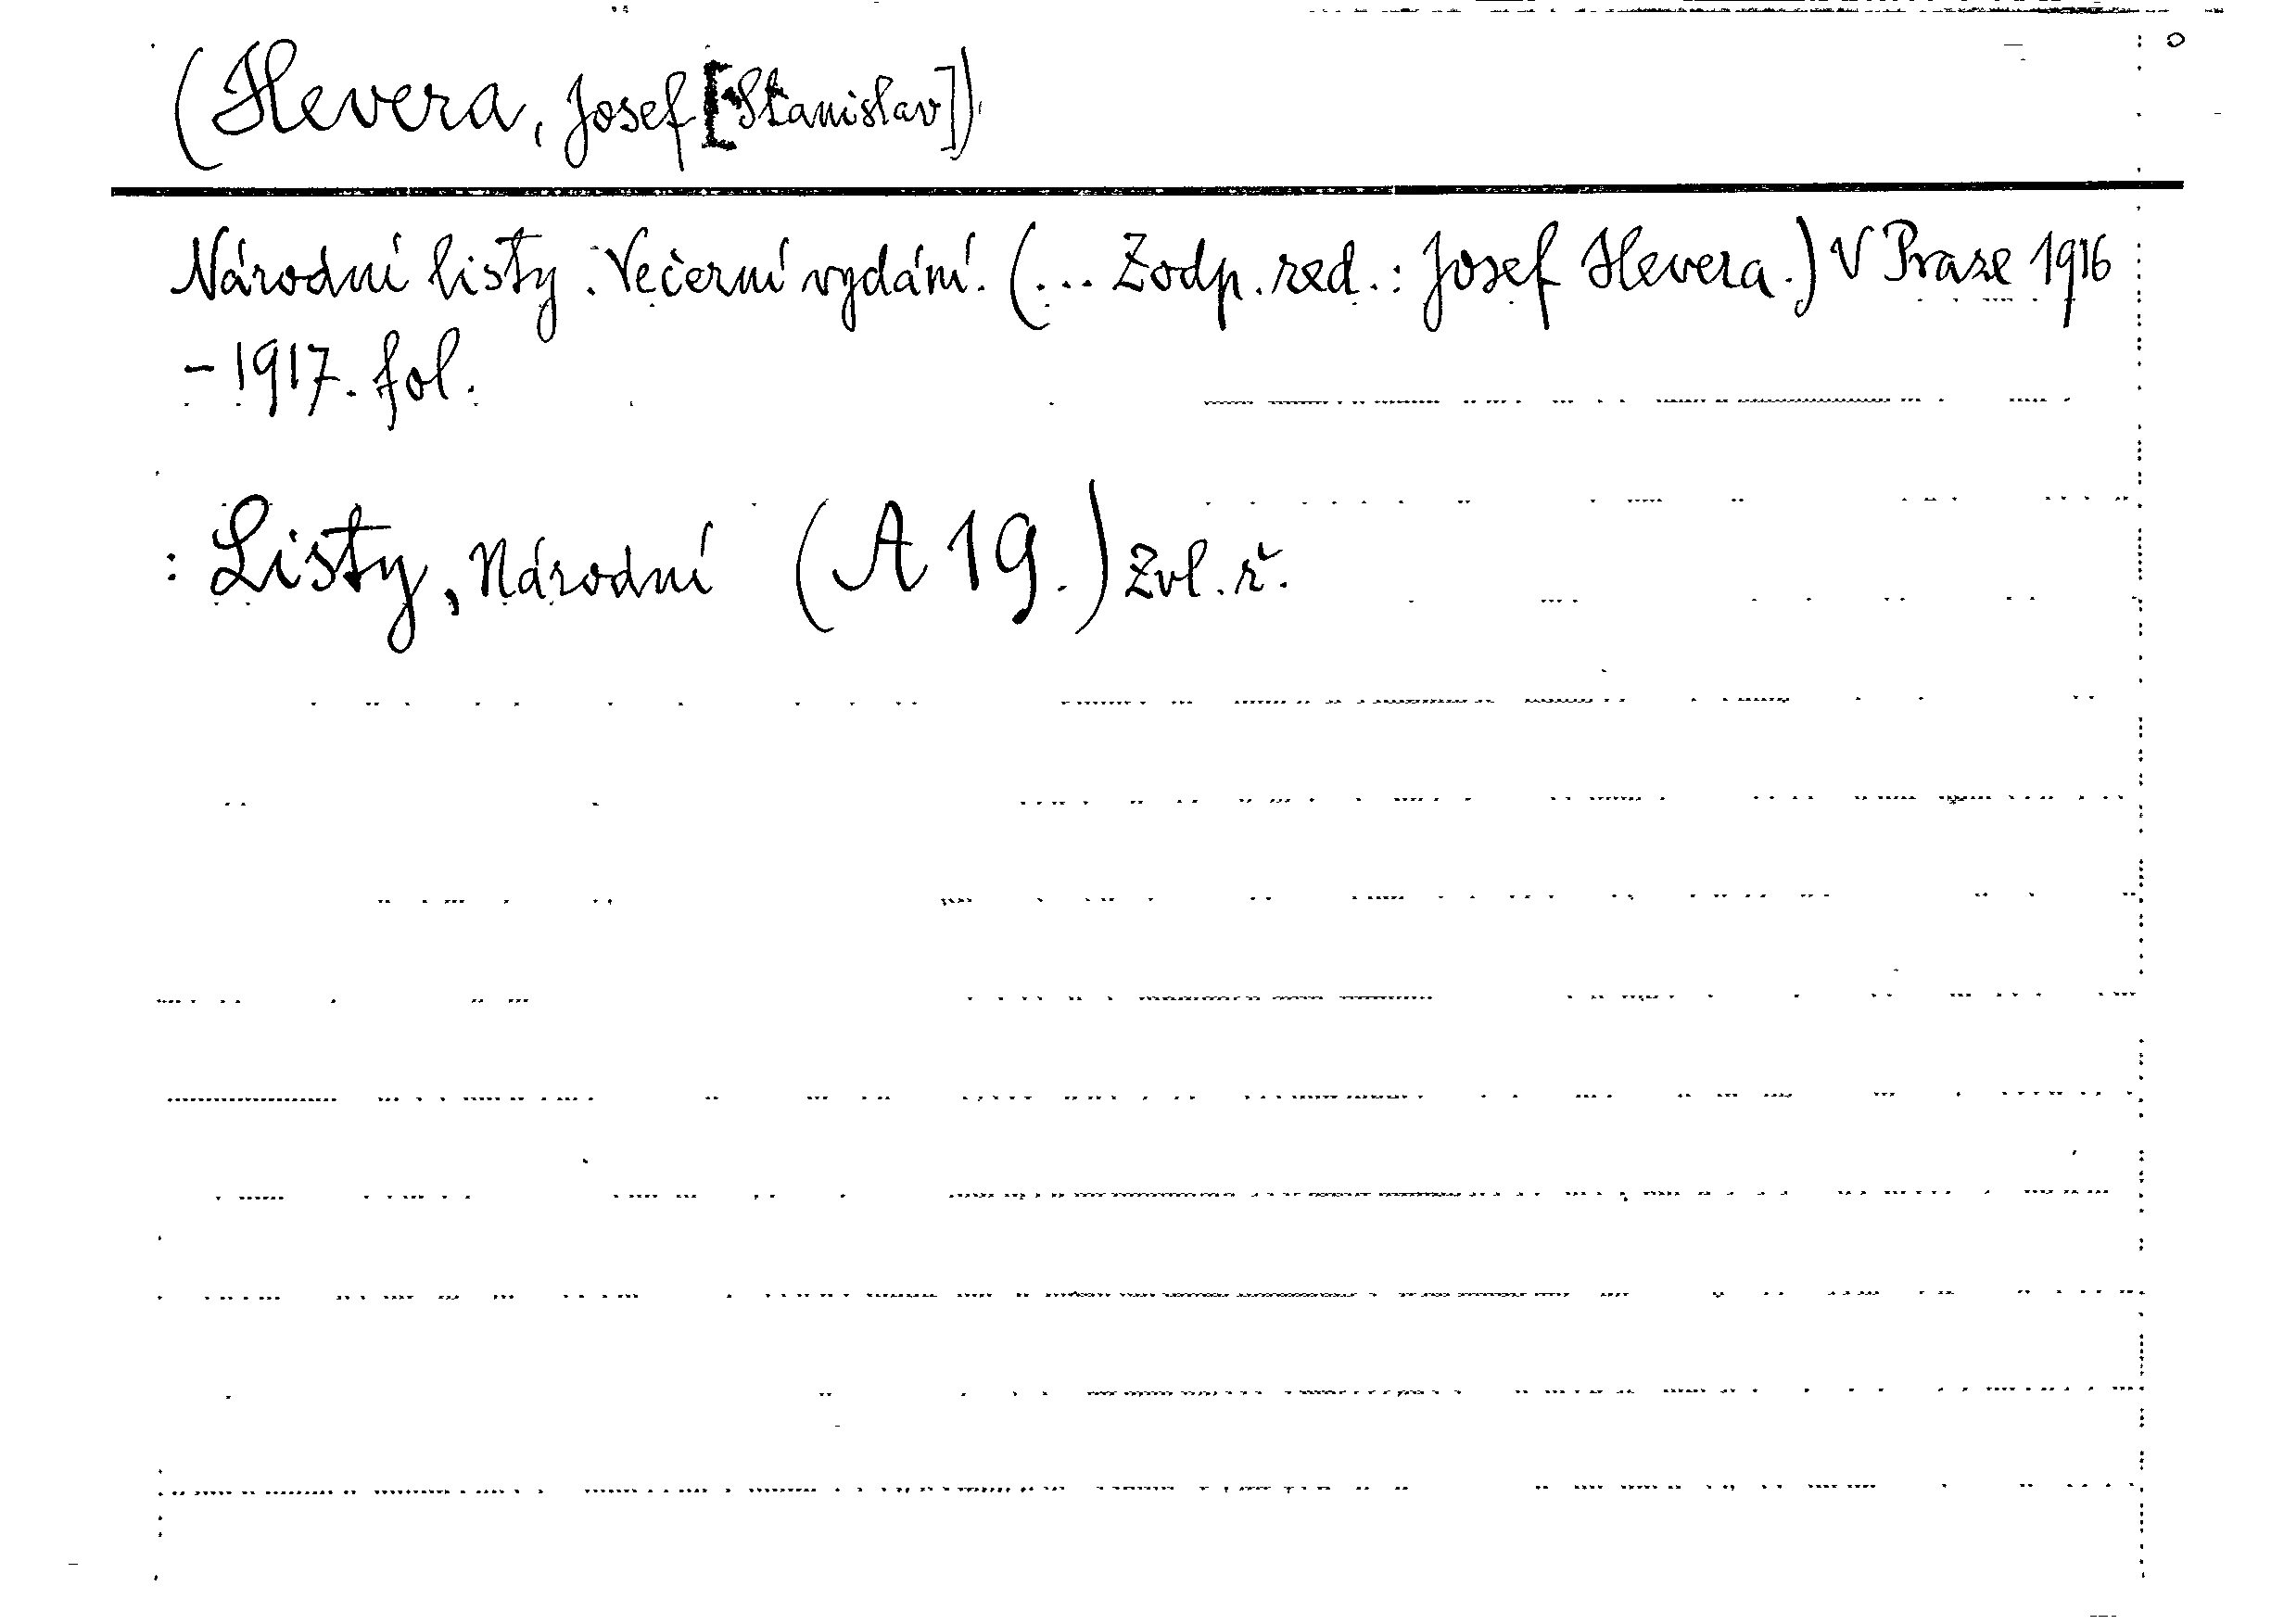 (Hevera, Josef [Stanislav])
Národní listy. Večerní vydání. (... Zodp. red.: Josef Hevera.) V Praze 1916
- 1917. fol.
: Listy, Národní (A 19.) Zvl. ř.